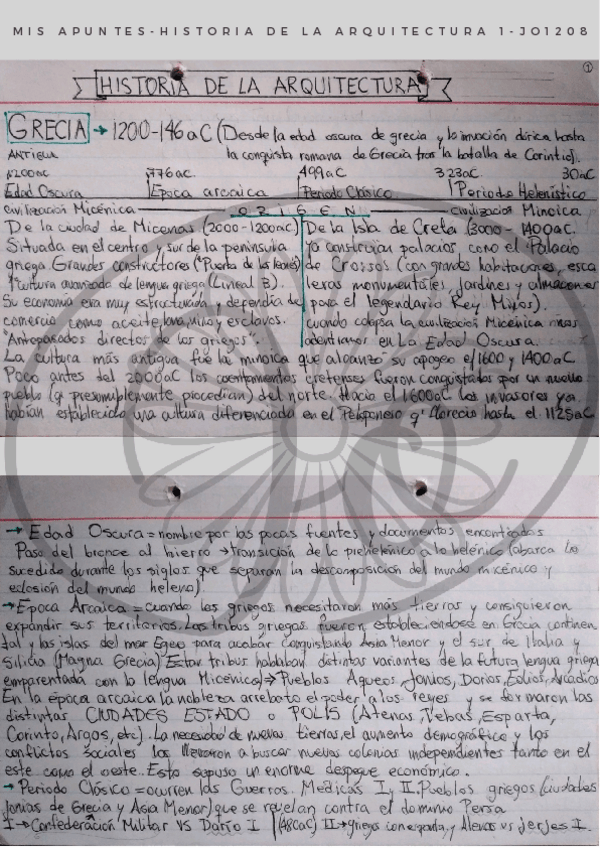 MIS APUNTES-HISTORIA DE LA ARQUITECTURA 1-JO1208
1
HISTORIA DE LA ARQUITECTURA
GRECIA → 1200-146 aC (Desde la edad oscura de grecia y la invación dórica hasta
ANTIGUA la conquista romana de Grecia tras la batalla de Corintio).
1200aC 776aC 499aC 323aC 30aC
Edad Oscura Epoca arcaica Periodo Clásico Periodo Helenístico
civilización Micénica ORIGEN civilización Minoica
De la ciudad de Micenas (2000-1200aC)
Situada en el centro y sur de la península
griega. Grandes constructores ("Puerta de los leones)
1ª cultura avanzada de lengua griega (Lineal B).
Su economía era muy estructurada y dependía de
comercio como aceite, lana, vino y esclavos.
"Antepasados directos de los griegos".
De la Isla de Creta (3000-1400aC.
ya construían palacios, como el Palacio
de Cnossos (con grandes habitaciones, esca
leras monumentales, jardines y almacenes
para el legendario Rey Minos).
cuando colapsa la civilización Micénica nos
adentramos en La Edad Oscura.
La cultura más antigua fue la minoica que alcanzó su apogeo el 1600 y 1400aC.
Poco antes del 2000aC los asentamientos cretenses fueron conquistados por un nuevo
pueblo (q' presumiblemente procedían) del norte. Hacia el 1600aC los invasores ya
habían establecido una cultura diferenciada en el Peloponeso q' floreció hasta el 1125aC
→ Edad Oscura = nombre por las pocas fuentes y documentos encontrados
Paso del bronce al hierro → transición de lo prehelénico a lo helénico (abarca lo
sucedido durante los siglos que separan la descomposición del mundo micénico y
eclosión del mundo heleno)
→ Epoca Arcaica = cuando los griegos necesitaron más tierras y consiguieron
expandir sus territorios. Las tribus griegas fueron estableciendose en Grecia continen
tal y las islas del mar Egeo para acabar conquistando Asia Menor y el sur de Italia y
Silicia (Magna Grecia) Estas tribus hablaban distintas variantes de la futura lengua griega
emparentada con la lengua Micénica) → Pueblos Aqueos, Jonios, Dorios, Eolios, Arcadios
En la época arcaica la nobleza arrebató el poder a los reyes y se formaron las
distintas CIUDADES ESTADO o POLIS (Atenas, Tebas, Esparta,
Corinto, Argos, etc). La necesidad de nuevas tierras, el aumento demográfico y los
conflictos sociales los llevaron a buscar nuevas colonias independientes tanto en el
este como el oeste. Esto supuso un enorme despegue económico.
→ Periodo Clásico = ocurren las Guerras Medicas I y II. Pueblos griegos (ciudades
Jonias de Grecia y Asia Menor) que se revelan contra el dominio Persa
I → Confederación Militar VS Darío I (480aC) II → griegos con esparta y Atenas vs Jerjes I.